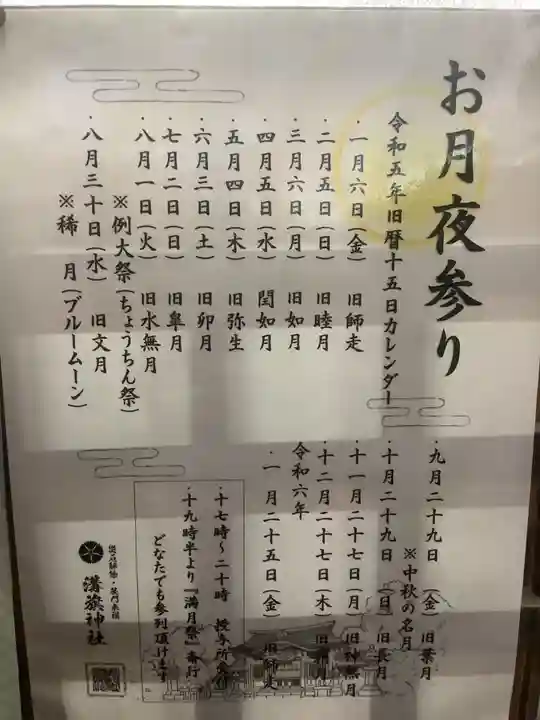 お月夜参り
令和五年旧暦十五日カレンダー
・一月六日(金) 旧師走
・二月五日(日) 旧睦月
・三月六日(月) 旧如月
・四月五日(水) 閏如月
・五月四日(木) 旧弥生
・六月三日(土) 旧卯月
・七月二日(日) 旧皐月
・八月一日(火) 旧水無月
※例大祭(ちょうちん祭)
・八月三十日(水) 旧文月
※稀 月(ブルームーン)
・九月二十九日(金) 旧葉月
※中秋の名月
・十月二十九日(日) 旧長月
・十一月二十七日(月) 旧神無月
・十二月二十七日(木) 旧
令和六年
・一月二十五日(金) 旧師走
・十七時〜二十時 授与所
・十九時半より『満月祭』斎行
どなたでも参列頂けます
溝旗神社